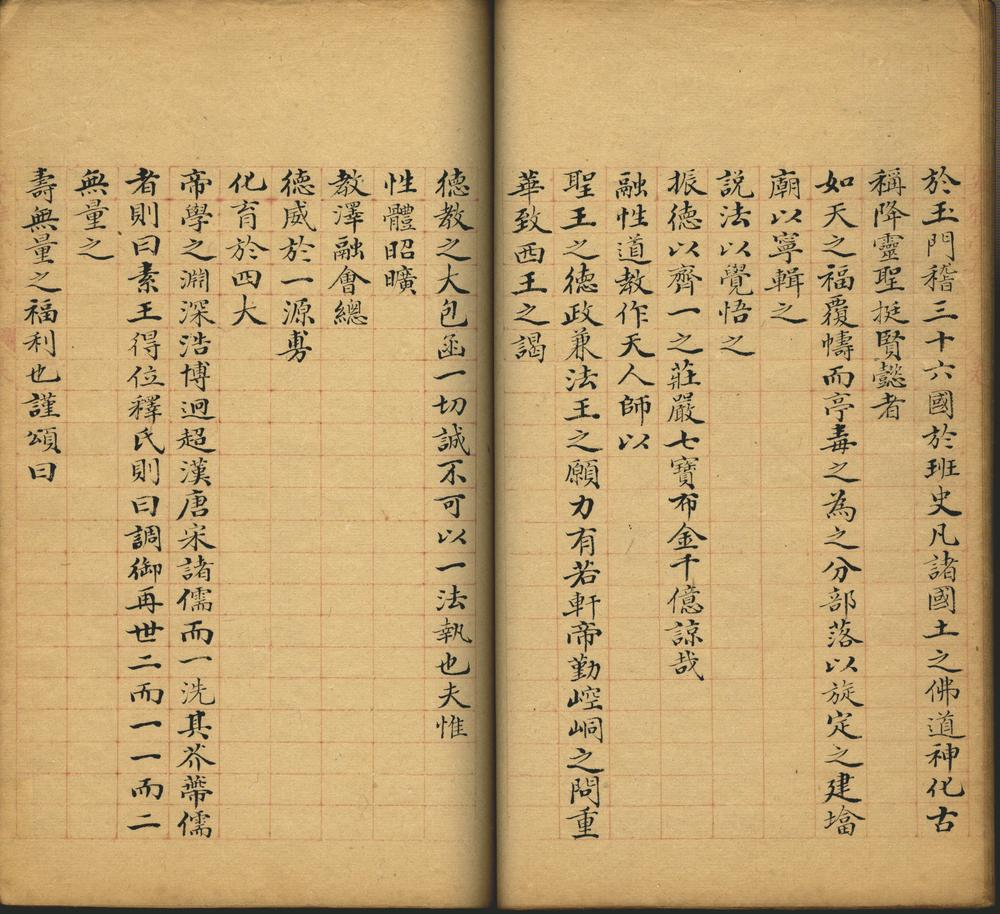 於玉門稽三十六國於班史凡諸國土之佛道神化古
稱降靈聖挺賢懿者
如天之福覆幬而亭毒之為之分部落以旋定之建墖
廟以寧輯之
説法以覺悟之
振德以齊一之莊嚴七寶布金千億諒哉
融性道教作天人師以
聖王之德政兼法王之願力有若軒帝勤崆峒之問重
華致西王之謁
德教之大包函一切誠不可以一法執也夫惟
性體昭曠
教澤融會總
德威於一源旉
化育於四大
帝學之淵深浩博迥超漢唐宋諸儒而一洗其芥蔕儒
者則曰素王得位釋氏則曰調御再世二而一一而二
無量之
壽無量之福利也謹頌曰